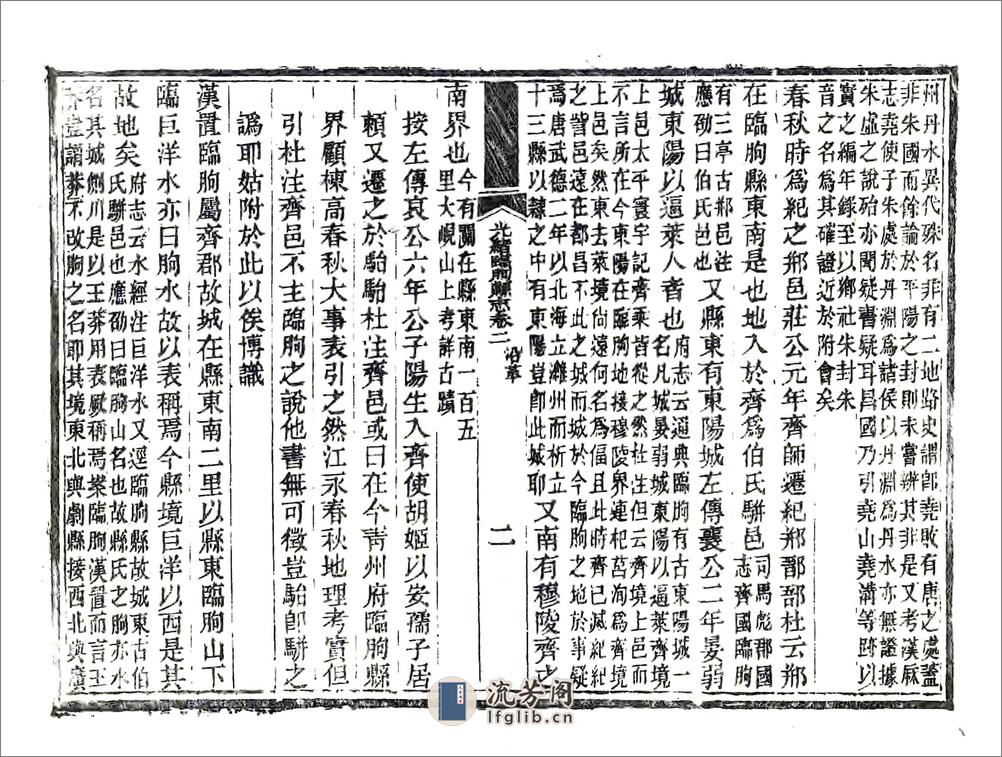 州丹水異代殊名非有二地路史謂卽堯敗有唐之處蓋
非朱國而餘論於平陽之封則未嘗辨其非是又考漢厤
志堯使子朱處於丹淵為諸侯以丹淵為丹水亦無證據
朱虛之說殆亦聞疑書疑耳昌國乃引堯山堯溝等跡以
實之編年錄至以鄉社朱封朱
音之名為其確證近於附會矣
春秋時為紀之郱邑莊公元年齊師遷紀郱鄑郚杜云郱
在臨朐縣東南是也地入於齊為伯氏駢邑
司馬彪郡國
志齊國臨朐
有三亭古郱邑注
應劭曰伯氏邑也
又縣東有東陽城左傳襄公二年晏弱
城東陽以逼萊人者也
府志云通典臨朐有古東陽城一
名凡城晏弱城東陽以逼萊齊境
上邑太平寰宇記齊乘皆從之然杜注但云齊境上邑而
不言所在今東陽在臨朐地接穆陵界連杞莒洵為齊境
上邑矣然東去萊境尙遠何名為偪且此時齊已滅紀紀
之皆邑遠在都昌不此之城而城於今臨朐之地於事疑
為唐武德二年以北海入濰州而析立
十三縣以隸之中有東陽豈卽此城耶
又南有穆陵齊之
光緒臨朐縣志卷二 沿革
二
南界也
今有關在縣東南一百五
里大峴山上考詳古蹟
按左傳哀公六年公子陽生入齊使胡姬以安孺子居
賴又遷之於駘駘杜注齊邑或曰在今青州府臨朐縣
界顧棟高春秋大事表引之然江永春秋地理考實但
引杜注齊邑不主臨朐之說他書無可徵豈駘卽駢之
譌耶姑附於此以俟博識
漢置臨朐屬齊郡故城在縣東南二里以縣東臨朐山下
臨巨洋水亦曰朐水故以表稱焉今縣境巨洋以西是其
故地矣
府志云水經注巨洋水又逕臨朐縣故城東古伯
氏駢邑也應劭曰臨朐山名也故縣氏之朐亦水
名其城側川是以王莽用表厥稱焉案臨朐漢置而言王
莽豈謂莽不改朐之名卽其境東北與劇縣接西北與廣
流芳阁
lfglib.cn